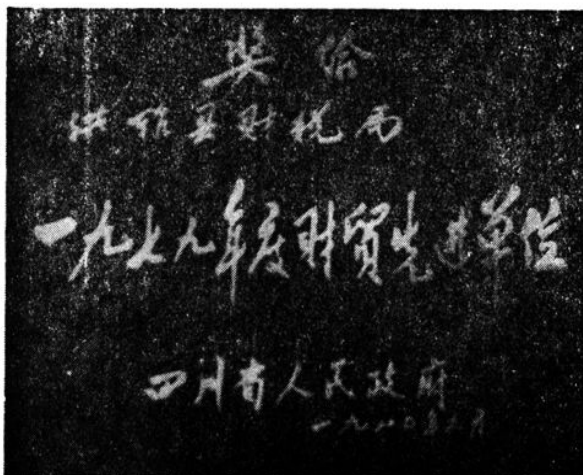 奖给
洪雅县财税局
一九七九年度财贸先进单位
四川省人民政府
一九八〇年二月